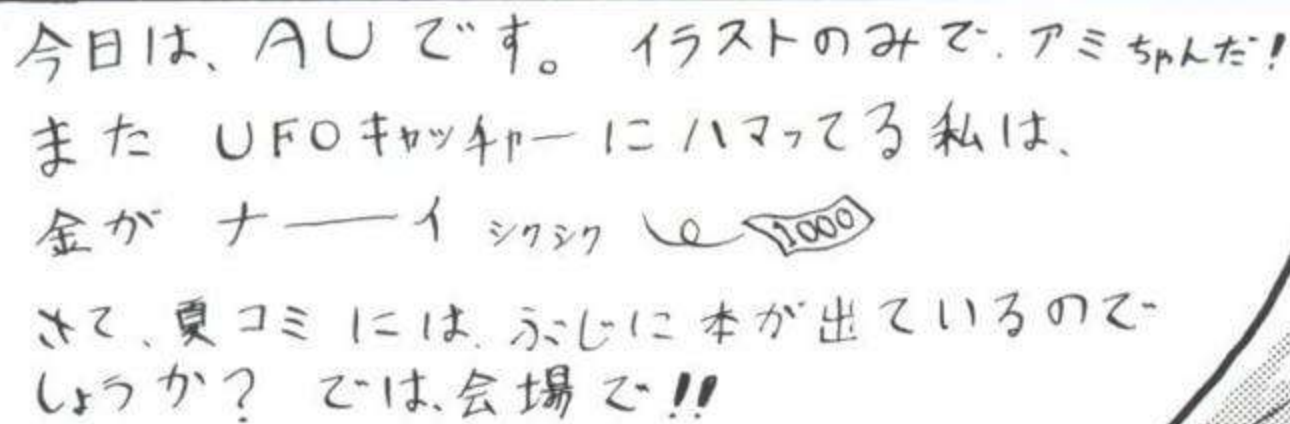 今日は、AUです。イラストのみで、アミちゃんだ!
また UFOキャッチャーにハマってる私は、
金が ナ――イ シクシク 1000
さて、夏コミには、ぶじに本が出ているので
しょうか? では、会場で!!